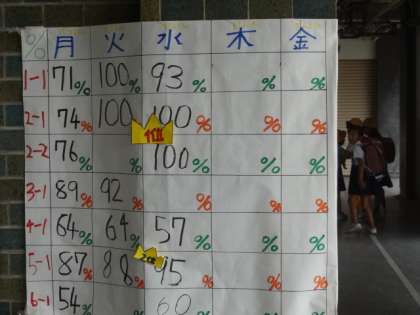 % 月 火 水 木 金
1-1 71% 100% 93% % %
2-1 74% 100 100% % %
2-2 76% % 100% % %
3-1 89% 92% % % %
4-1 64% 64% 57% % %
5-1 87% 88% 95% % %
6-1 54% 60 % %